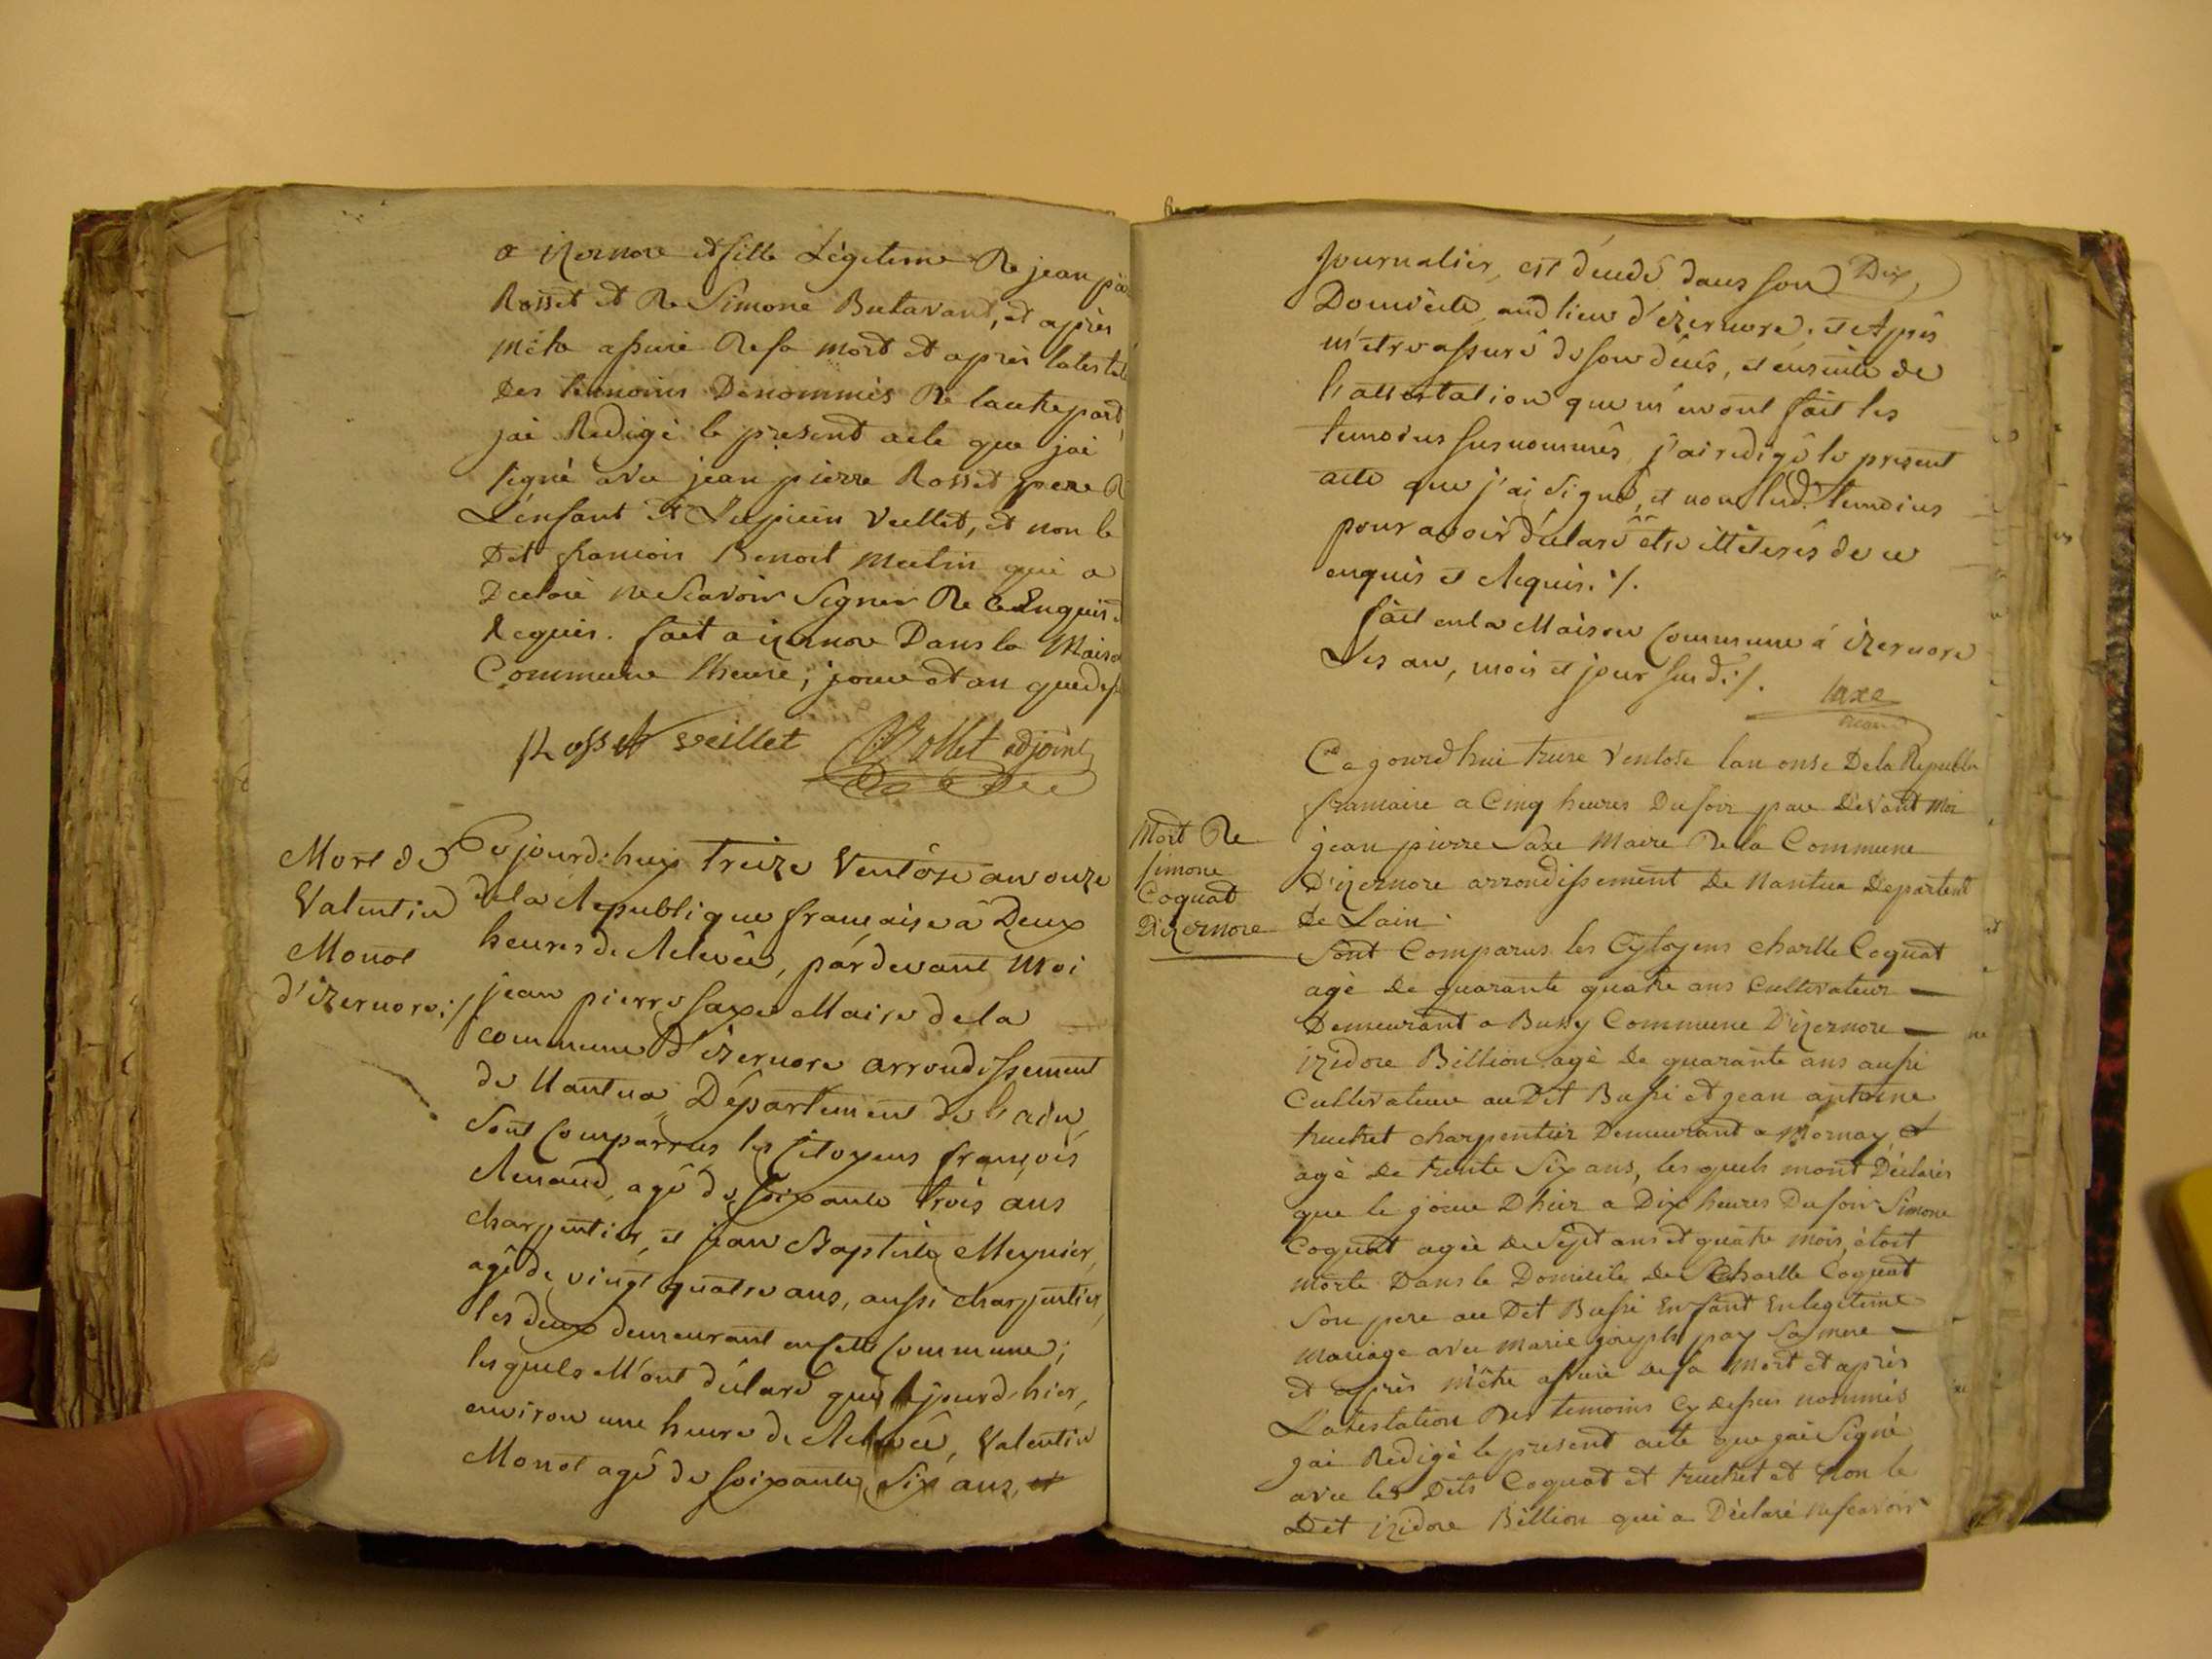 a izernore et fille Légitime De jean pie
Rosset et De Simone Butavant, et après
mêtre assuré De sa mort et après latesta
Des temoins Dénommés De lautre part,
jai Redigé le present acte que jai
signé avec jean pierre Rosset pere D
L'enfant et Veillet, et non le
Dit francois Benoit Mutin qui a
Declaré ne Scavoir Signer De ce Enquis
Requis. fait a izernore Dans la Maison
Commune lheure, jour et an que dess
Rosset veillet Bollet adjoint
Mort de
Valentin
Monot
d'izernore ./
Cejourd'huy treize Ventôse an onze
de la République française à Deux
heures de Relevée, pardevant Moi
jean pierre Saxe Maire de la
commune d'izernore arrondissement
de Nantua Département de l'ain,
Sont Comparrus les Citoyens françois
Renaud, agé de soixante trois ans
charpentier, et jean Baptiste Meynier,
agé de vingt quatre ans, aussi charpentier,
les deux demeurant en cette Commune;
lesquels M'ont déclaré que le jourd'hier,
environ une heure de Relevée, Valentin
Monot agé de soixante Six ans, et
Dix
journalier, est décédé dans son
Domicile, aud lieu d'izernore. et Après
m'etre assuré de son décés, et ensuite de
l'attestation que m'en ont fait les
temoins susnommés, j'ai redigé le present
acte que j'ai Signé, et non lesd. temoins
pour avoir déclaré etre illéterés de ce
enquis et Requis. ./.
fait en la Maison Commune à izernore
Les an, mois et jour susd. ./.
Saxe
maire
Mort De
simone
Coquat
D'izernore
Cejourdhui treise Ventose lan onse De la Republi
francaise a Cinq heures Du soir par Devant Moi
jean pierre Saxe Maire De la Commune
D'izernore arrondissement De Nantua Departent
De Lain.
Sont Comparus les Cytoyens Charlle Coquat
agé De quarante quatre ans Cultivateur
Demeurant a Bussy Commune D'izernore
izidore Billion agé De quarante ans aussi
Cultivateur au Dit Bussi et jean antoine
truchet charpentier Demeurant a Mornay et
agé De trente Six ans, les quels mont Déclarés
que le jour Dhier a Dix heures Du soir Simone
Coquat agée De Sept ans et quatre mois, étoit
morte Dans le Domicile De Charlle Coquat
Son pere au Dit Bussi Enfant En legitime
mariage avec Marie joseph pay sa mere
et après mêtre assuré De sa Mort et après
L'atestation Des temoins Cy dessus nommés
jai Redigé le present acte que jai Signé
avec les Dits Coquat et truchet et Non le
Dit izidore Billion qui a Déclaré ne scavoir